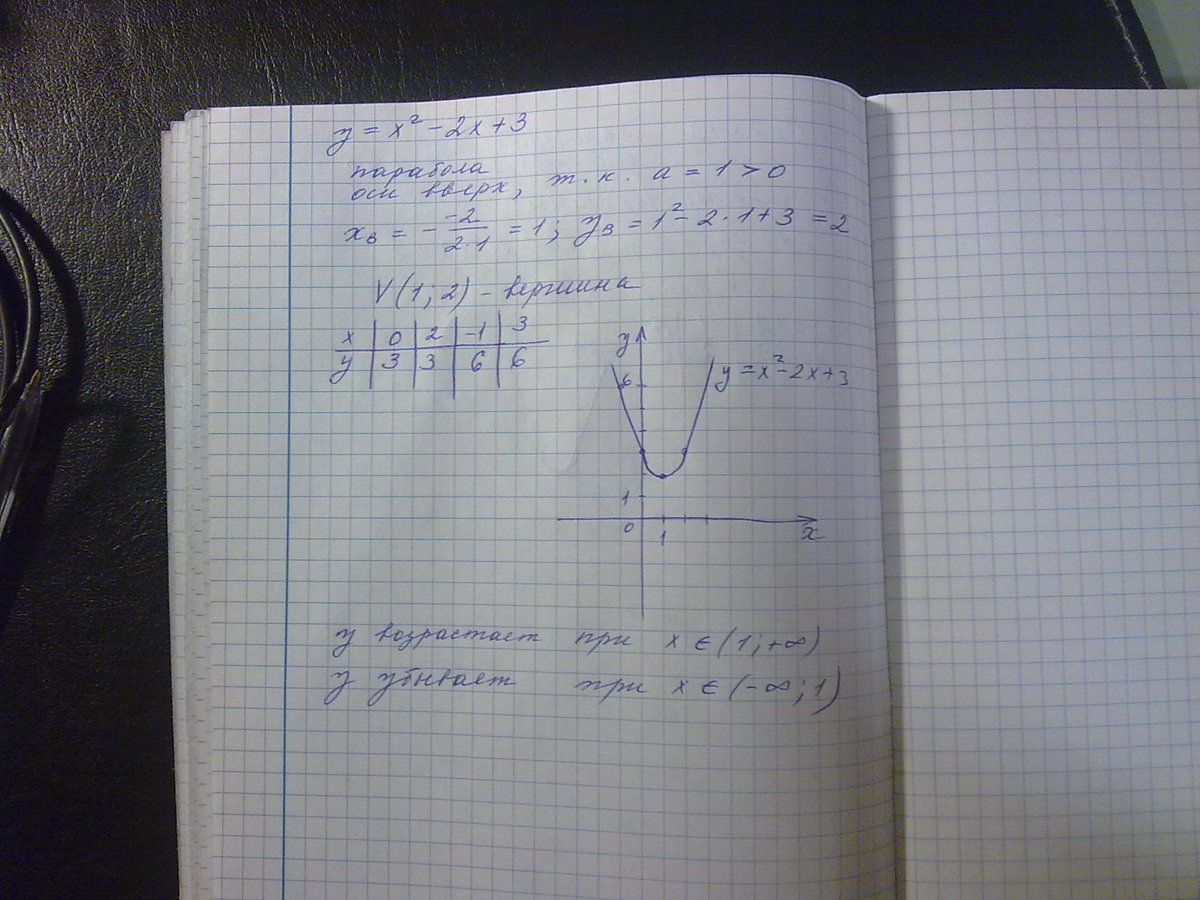 y = x² - 2x + 3
парабола
оси вверх, т.к. a = 1 > 0
xв = - -2/2·1 = 1; yв = 1² - 2·1 + 3 = 2
V(1; 2) - вершина
x | 0 | 2 | -1 | 3
y | 3 | 3 | 6 | 6
y
6
y = x² - 2x + 3
1
0
1
x
y возрастает при x ∈ (1; +∞)
y убывает при x ∈ (-∞; 1)